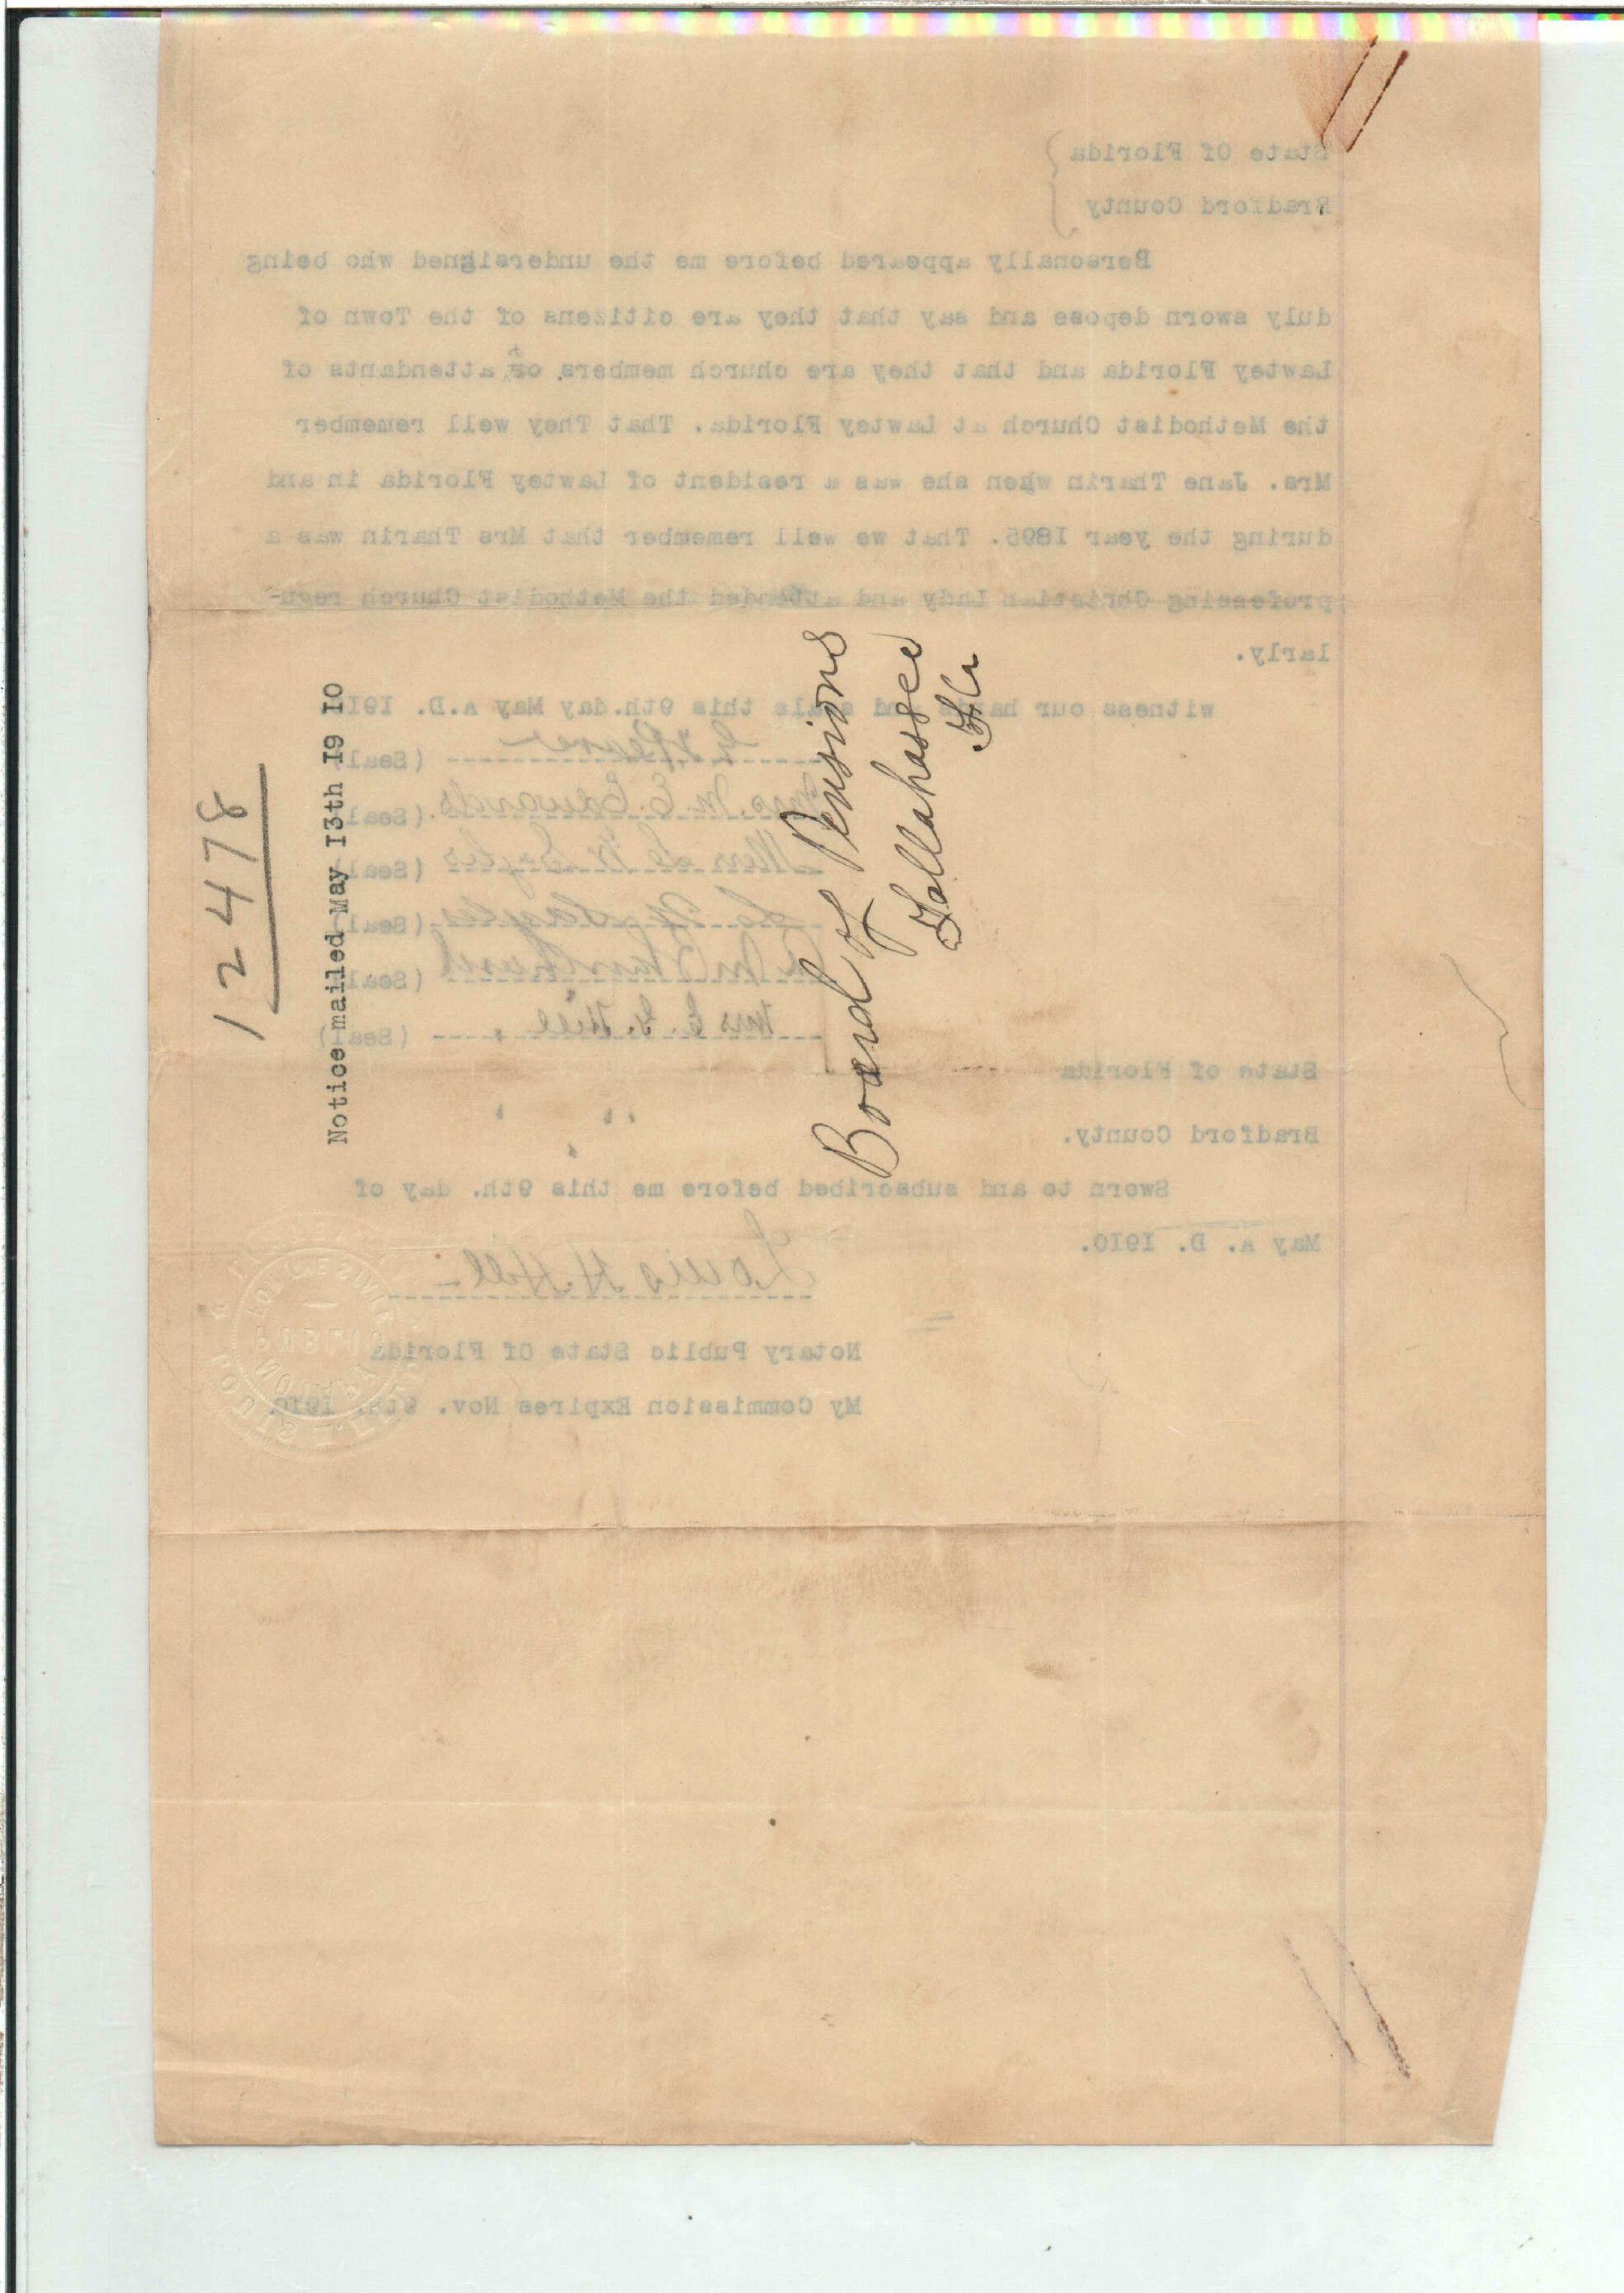 12478
Notice mailed May I3th I9 IO
Board of Pensions
Tallahassee
Fla
State Of Florida
Bradford County
Personally appeared before me the undersigned who being
duly sworn depose and say that they are citizens of the Town of
Lawtey Florida and that they are church members, or attendants of
the Methodist Church at Lawtey Florida. That They well remember
Mrs. Jane Tharin when she was a resident of Lawtey Florida in and
during the year I895. That we well remember that Mrs Tharin was a
professing Christian Lady and attended the Methodist Church regu-
larly.
witness our hands and seals this 9th.day May A.D. I9IO
(Seal)
Mrs. M. E. Edwards (Seal)
(Seal)
(Seal)
(Seal)
Mrs E. G. Hill (Seal)
State of Florida
Bradford County.
Sworn to and subscribed before me this 9th. day of
May A. D. I9IO.
Louis H. Hill
Notary Public State Of Florida
My Commission Expires Nov. 9th. I9IO
NOTARY
PUBLIC